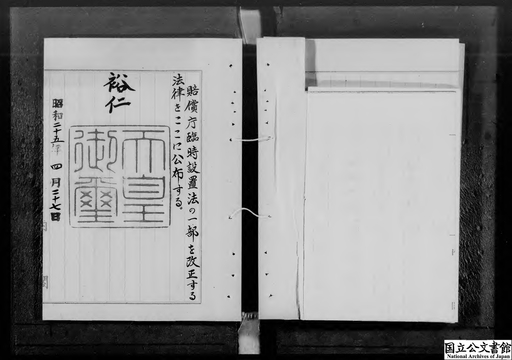 賠償庁臨時設置法の一部を改正する
法律をここに公布する。
裕仁
天皇
御璽
昭和二十五年四月二十七日
国立公文書館
National Archives of Japan